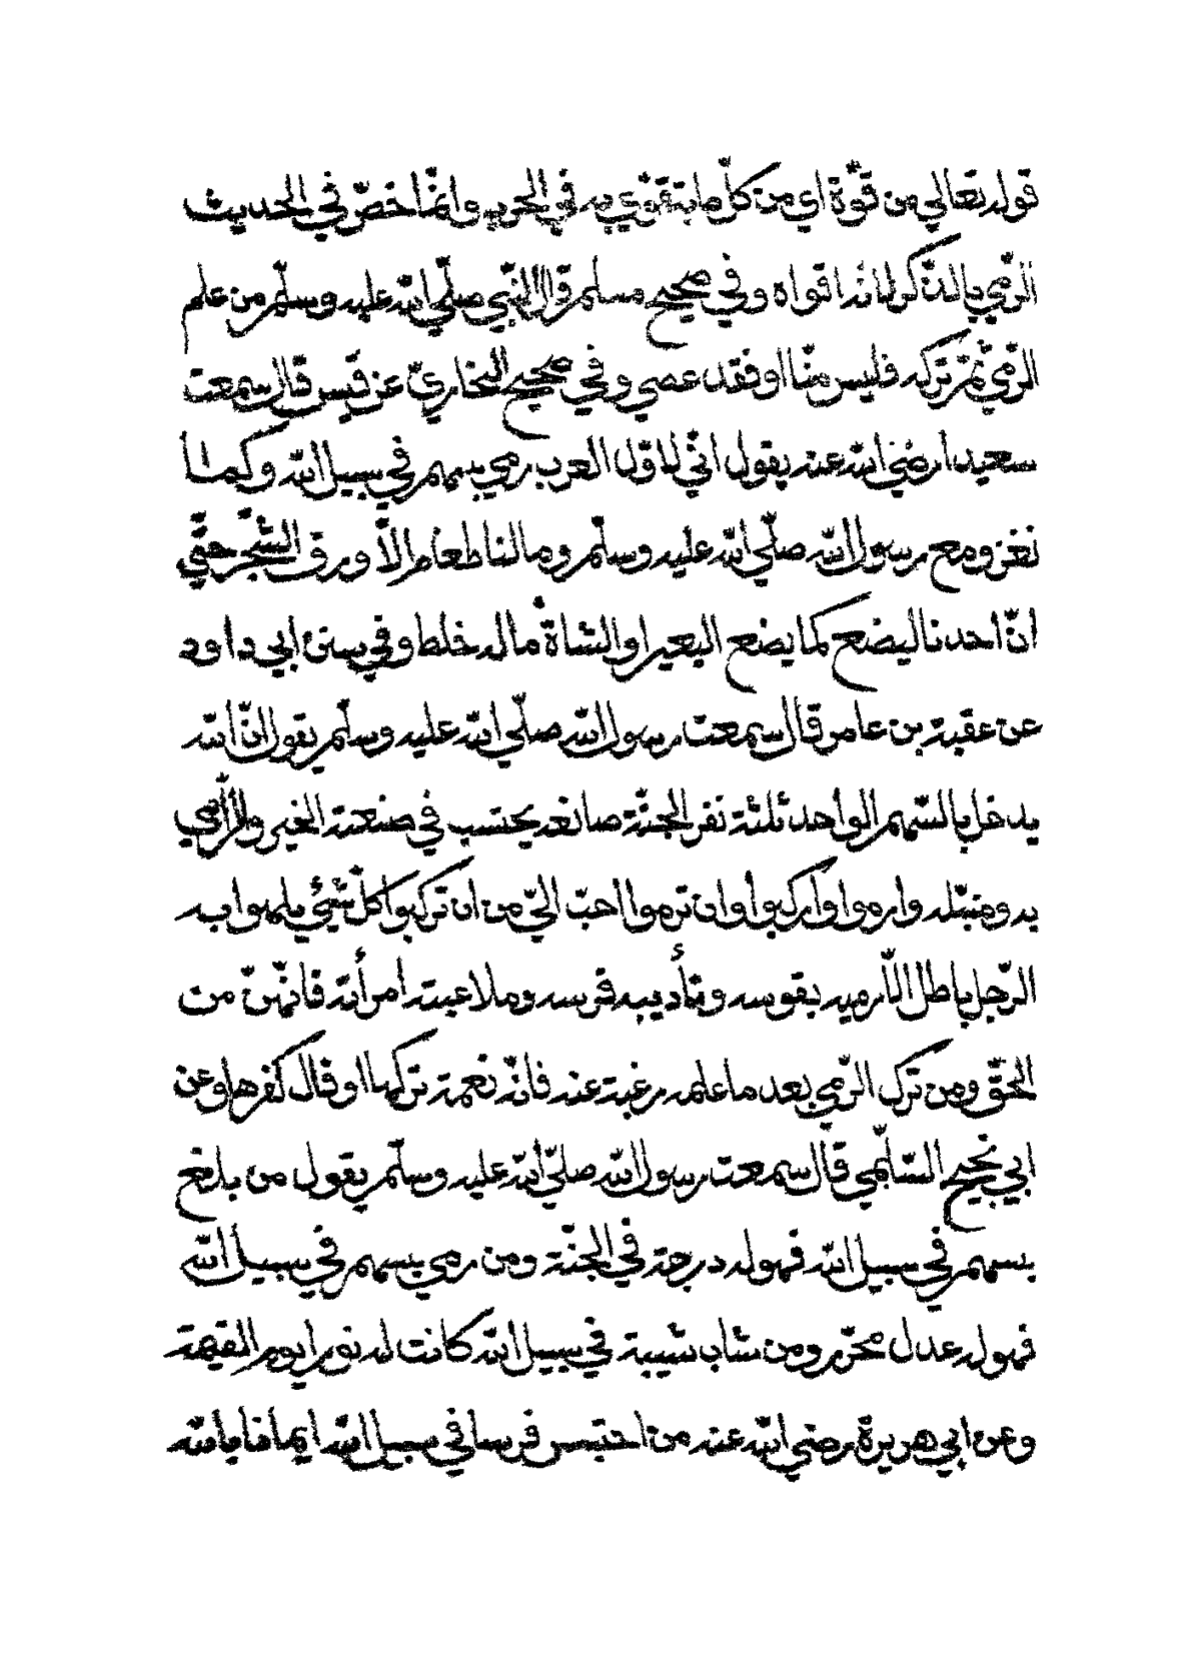 قوله تعالي من قوّة اي من كلّ ما يتقوّي به في الحرب وانّما خصّ في الحديث
الرّمي بالذّكر لانّه اقواه وفي صحيح مسلم قال النّبي صلّي الله عليه وسلّم من علم
الرّمي ثمّ تركه فليس منّا او فقد عصي وفي صحيح البخاريّ عن قيس قال سمعت
سعيدا رضي الله عنه يقول انّي لاوّل العرب رمي بسهم في سبيل الله وكما
نغزو مع رسول الله صلّي الله عليه وسلّم وما لنا طعام الاّ ورق الشّجر حتّي
انّ احدنا ليضع كما يضع البعير او الشاة ما له خلط وفي سنن ابي داود
عن عقبة بن عامر قال سمعت رسول الله صلّي الله عليه وسلّم يقول انّ الله
يدخل بالسّهم الواحد ثلثة نفر الجنّة صانعه يحتسب في صنعته الخير والرّامي
به ومنبّله وارموا واركبوا وان ترموا احبّ اليّ من ان تركبوا كلّ شيء يلهوا به
الرّجل باطل الاّ رميه بقوسه وتأديبه فرسه وملاعبته امرأته فانّهنّ من
الحقّ ومن ترك الرّمي بعد ما علمه رغبة عنه فانّه نعمة تركها او قال كفرها وعن
ابي نجيح السّلمي قال سمعت رسول الله صلّي الله عليه وسلّم يقول من بلغ
بسهم في سبيل الله فهو له درجة في الجنّة ومن رمي بسهم في سبيل الله
فهو له عدل محرّر ومن شاب شيبة في سبيل الله كانت له نورا يوم القيمة
وعن ابي هريرة رضي الله عنه من احتبس فرسا في سبيل الله ايمانا بالله